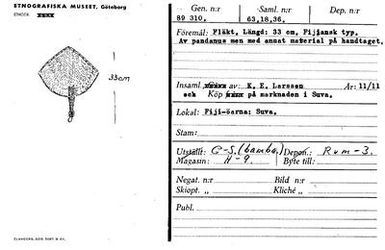 ETNOGRAFISKA MUSEET, Göteborg
33cm
Gen. n:r
Saml. n:r
Dep. n:r
89 310.
63,18,36.
Föremål: Fläkt, Längd: 33 cm, Fijiansk typ.
Av pandanus men med annat material på handtaget.
Insaml av: K. E. Larsson År: 11/11
och Köp på marknaden i Suva.
Lokal: Fiji-öarna: Suva.
Stam:
Utställt: C-S. (bambo.) Depon.: Rum-3.
Magasin: H-9. Byte till:
Negat. n:r Bild n:r
Skiopt. „ Kliché „
Publ.